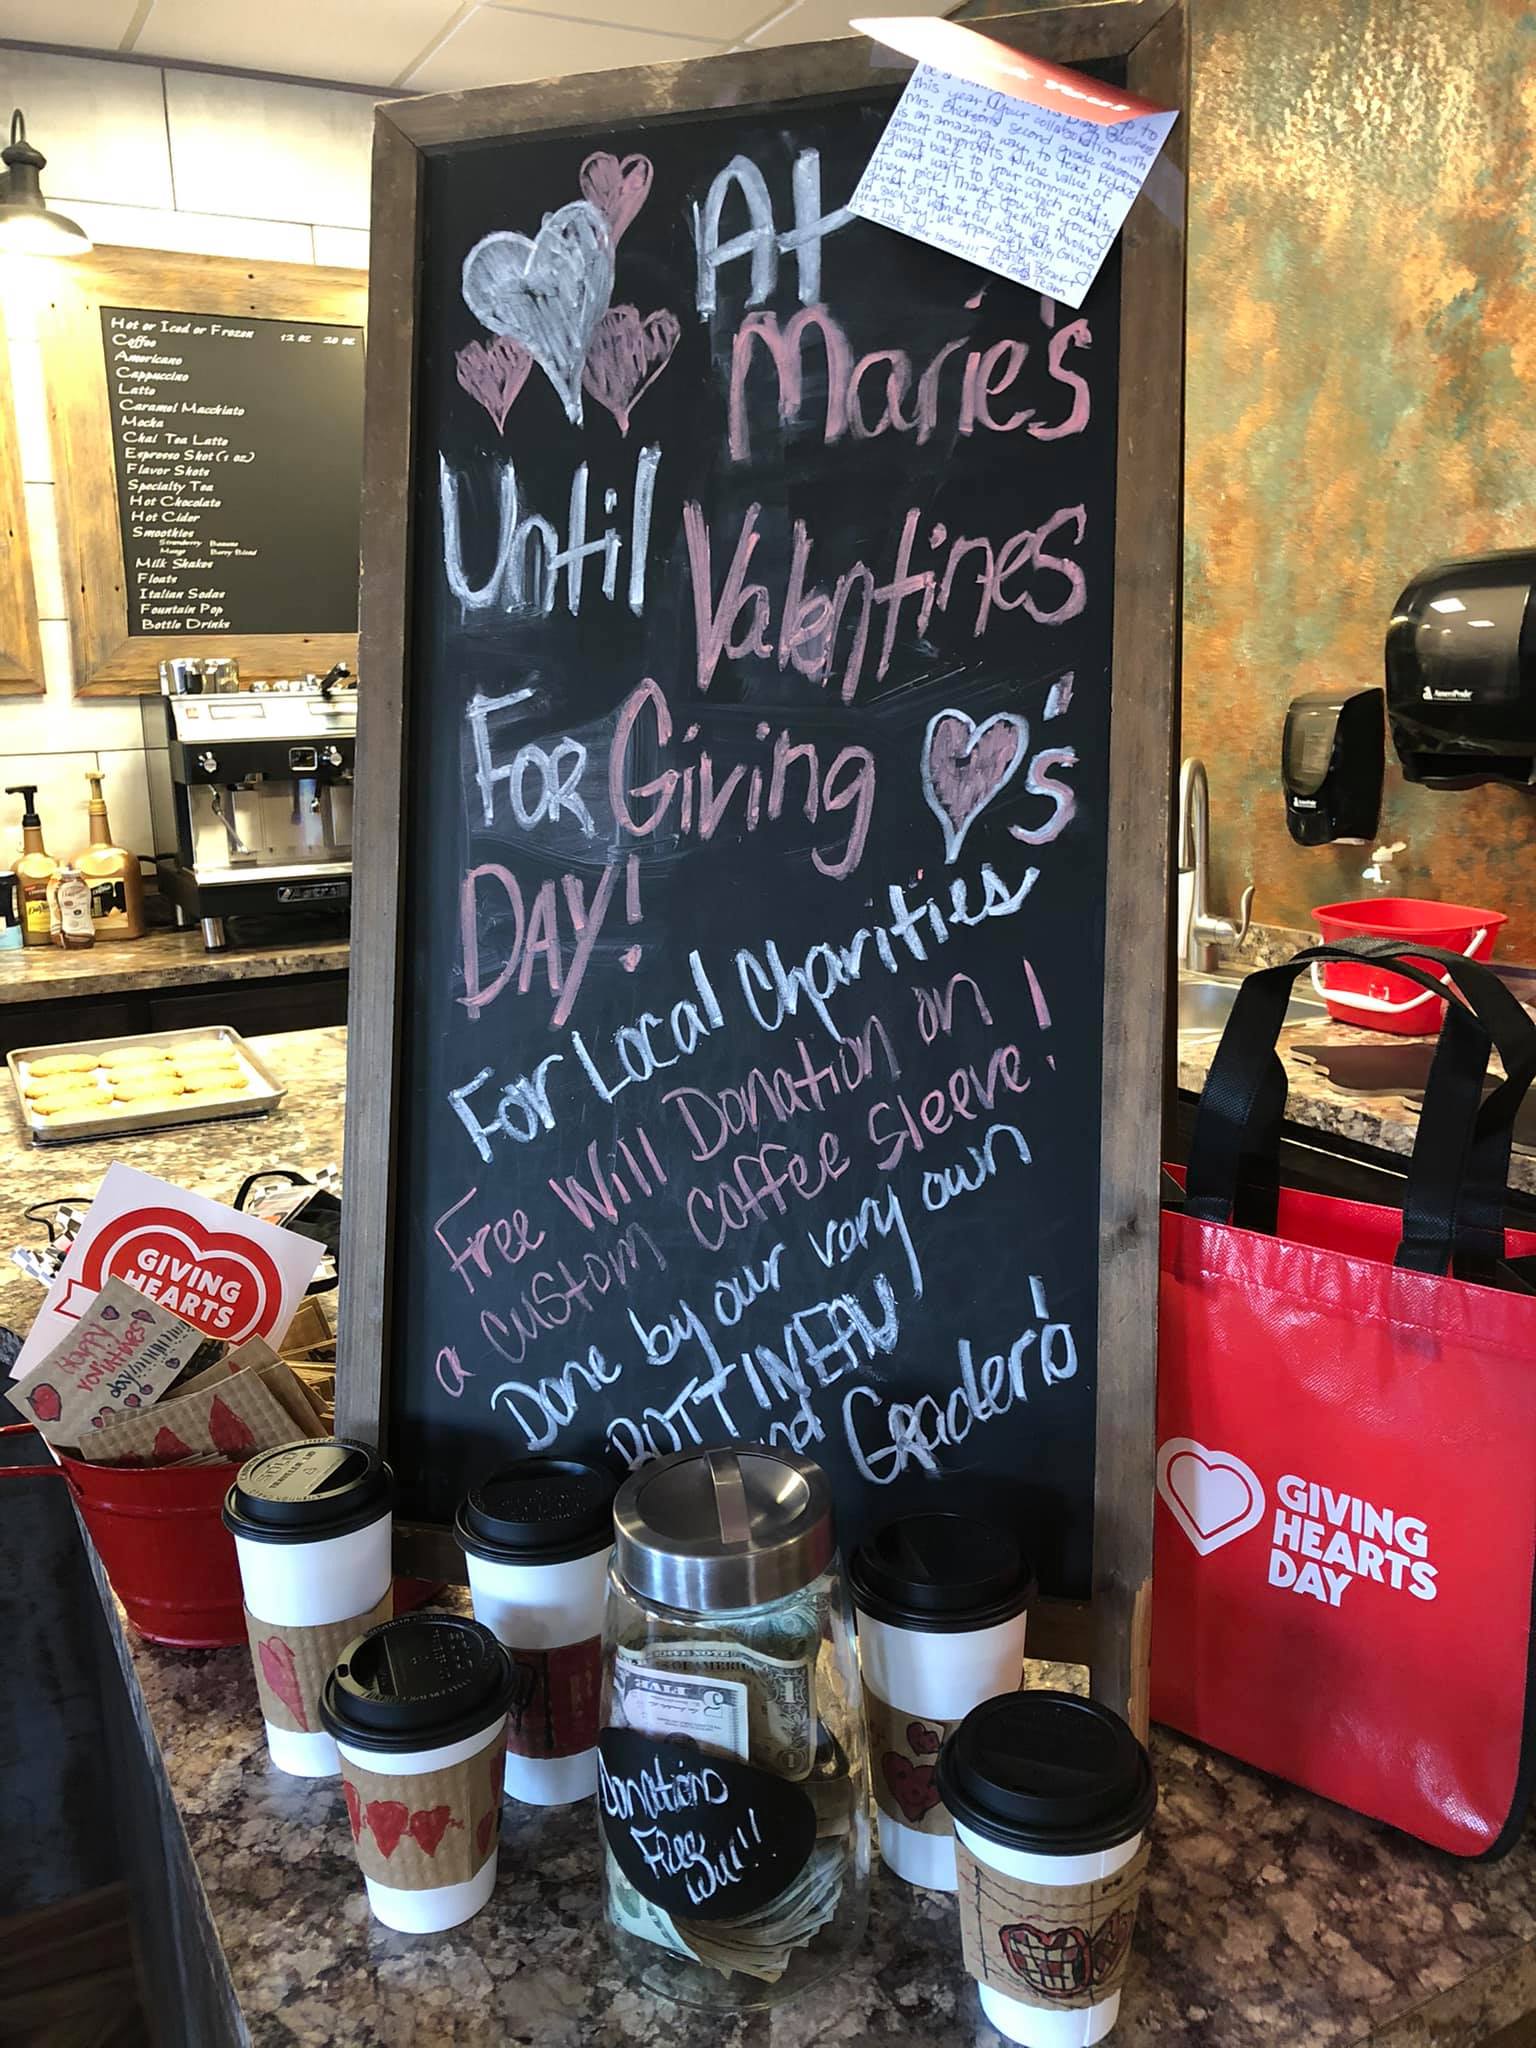 At
Marie's
Until
Valentines
For Giving 's
DAY!
For Local Charities
Free Will Donation on
a custom coffee sleeve!
Done by our very own
BOTTINEAU
Grader's
this year! Your collaboration with
Mrs. Erickson's second grade classroom
is an amazing way to teach kiddos
about nonprofits & the value of
giving back to your community.
I can't wait to hear which charity
they pick! Thank you for your
generosity & for getting involved
in such a wonderful way this Giving
Hearts Day. We appreciate you!!
Team
Hot or Iced or Frozen 12 oz 20 oz
Coffee
Americano
Cappuccino
Latte
Caramel Macchiato
Mocha
Chai Tea Latte
Espresso Shot (1 oz)
Flavor Shots
Specialty Tea
Hot Chocolate
Hot Cider
Smoothies
Strawberry Banana
Mango Berry Blend
Milk Shakes
Floats
Italian Sodas
Fountain Pop
Bottle Drinks
GIVING
HEARTS
Happy
day
SOLO
TRAVELER LID
FIVE
5
1
Donations
Free
Will!!
GIVING
HEARTS
DAY